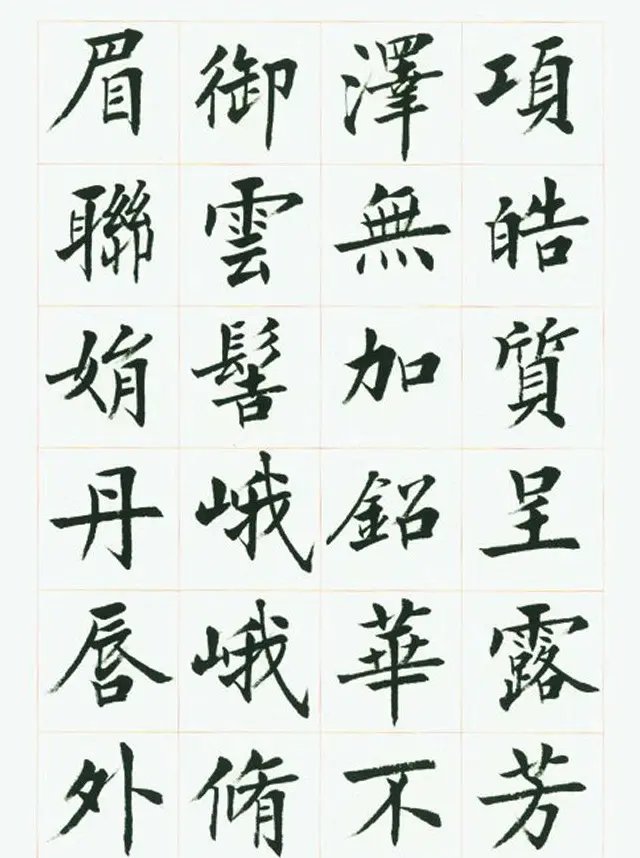 項皓質呈露芳
澤無加鉛華不
御雲髻峨峨脩
眉聯娟丹唇外